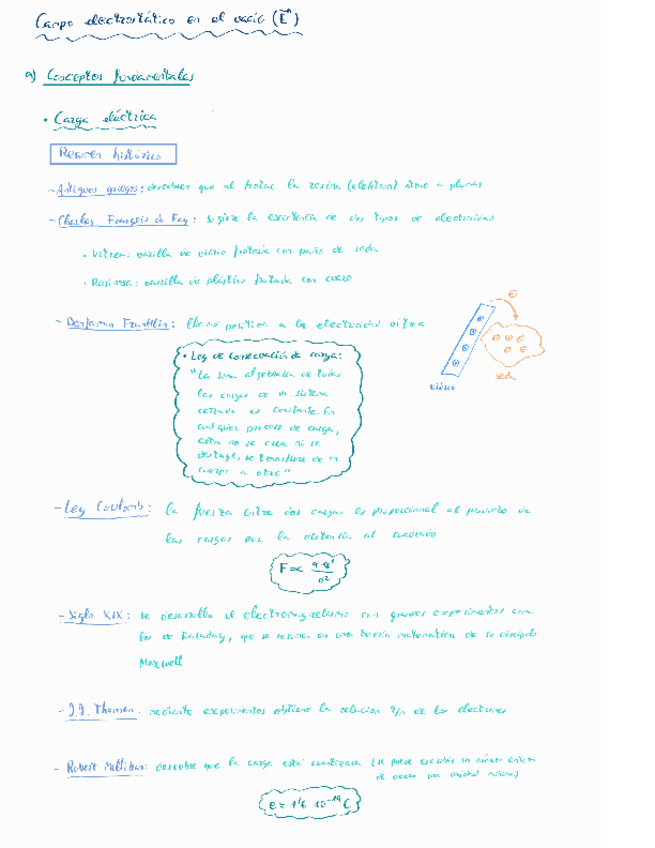 Campo electrostático en el vacío (E⃗)
a) Conceptos fundamentales
• Carga eléctrica
Resumen histórico
- Antiguos griegos: descubren que al frotar la resina (elektron) atrae a plumas
- Charles François du Fay: sugiere la existencia de dos tipos de electricidad
• Vítrea: varilla de vidrio frotada con paño de seda
• Resinosa: varilla de plástico frotada con cuero
- Benjamin Franklin: llamó positiva a la electricidad vítrea
e
vidrio
seda
• Ley de conservación de carga:
"La suma algebraica de todas
las cargas de un sistema
cerrado es constante. En
cualquier proceso de carga,
esta no se crea ni se
destruye, se transfiere de un
cuerpo a otro"
- Ley Coulomb: la fuerza entre dos cargas es proporcional al producto de
las cargas por la distancia al cuadrado
F ∝ q·q'/d²
- Siglo XIX: se desarrolla el electromagnetismo con grandes experimentos como
los de Faraday, que se resumen en una teoría matemática de su discípulo
Maxwell
- J.J. Thomson: mediante experimentos obtiene la relación q/m de los electrones
- Robert Millikan: descubre que la carga está cuantizada (se puede escribir un número entero
de veces una unidad mínima)
e = 1'6 10⁻¹⁹ C